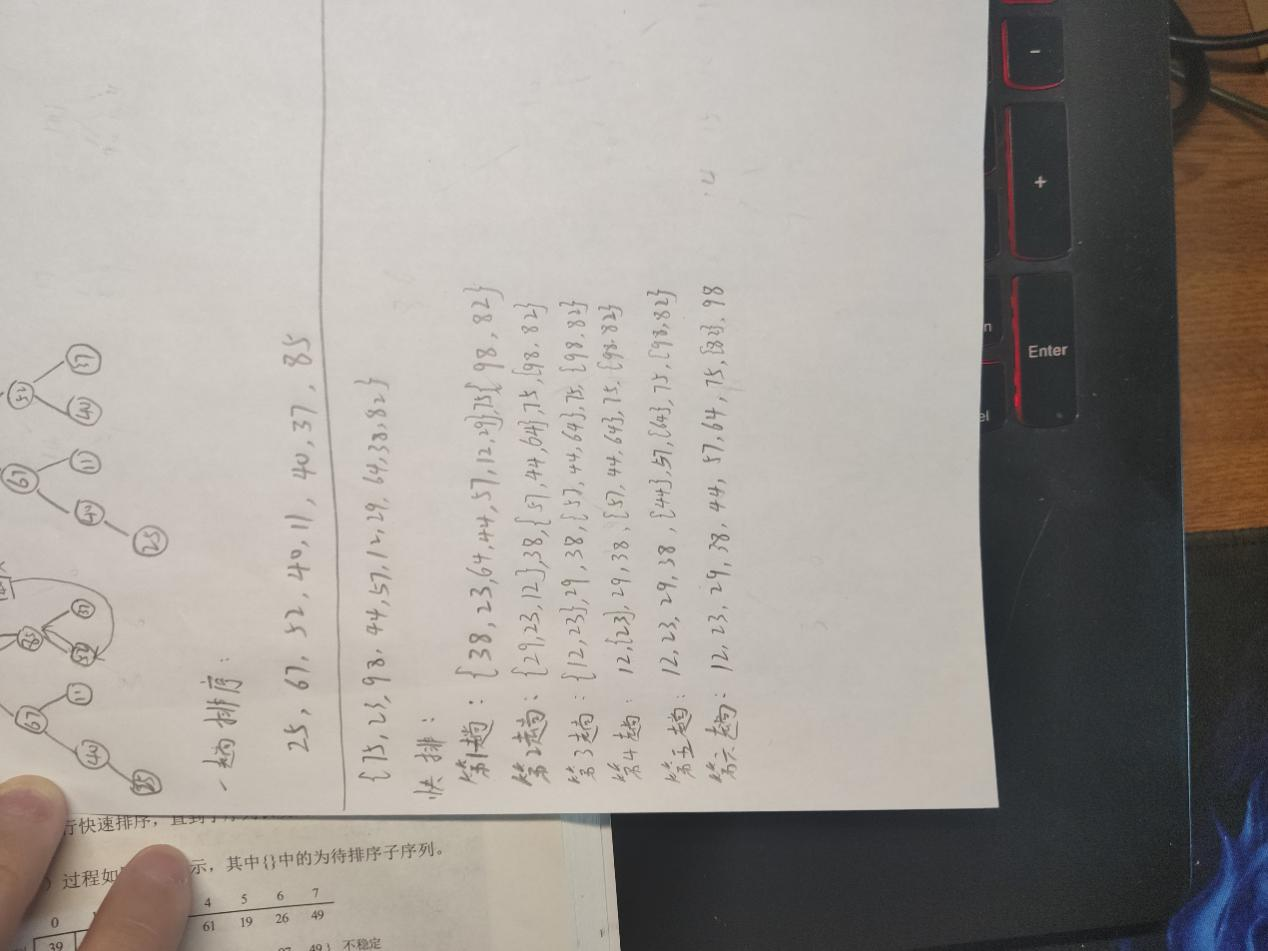 52
37
40
67
11
25
85
37
67
11
40
85
一趟排序：
25, 67, 52, 40, 11, 40, 37, 85
{75, 23, 98, 44, 57, 12, 29, 64, 38, 82}
快排：
第1趟：{38, 23, 64, 44, 57, 12, 29}, 75{98, 82}
第2趟：{29, 23, 12}, 38, {57, 44, 64}, 75, {98, 82}
第3趟：{12, 23}, 29, 38, {57, 44, 64}, 75, {98, 82}
第4趟：12, {23}, 29, 38, {57, 44, 64}, 75, {98, 82}
第五趟：12, 23, 29, 38, {44}, 57, {64}, 75, {98, 82}
第六趟：12, 23, 29, 38, 44, 57, 64, 75, {82}, 98
行快速排序，直到
过程如 示，其中{}中的为待排序子序列。
0 4 5 6 7
39 61 19 26 49
49} 不稳定
-
+
Enter